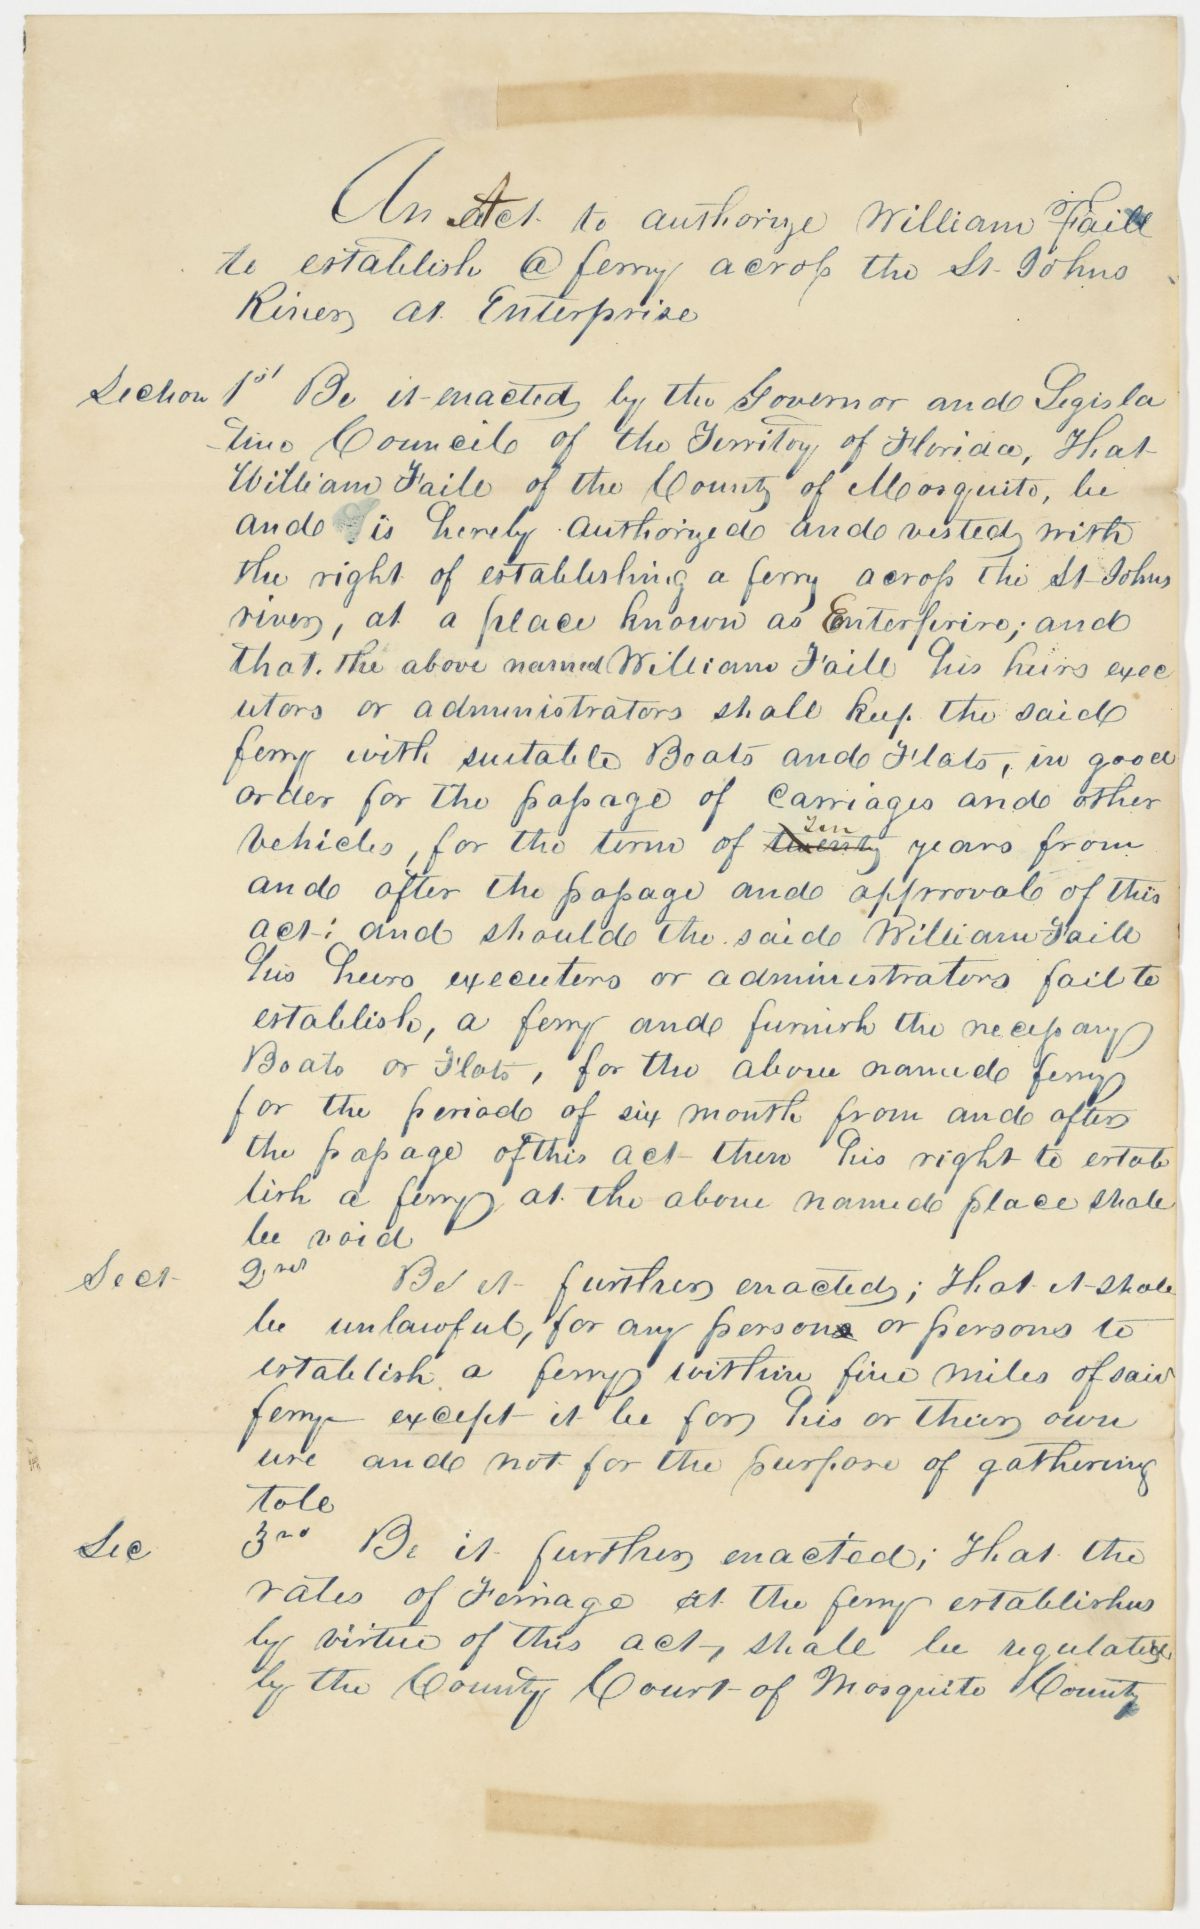 An Act to authorize William Faill
to establish @ ferry across the St Johns
River at Enterprise
Section 1st Be it enacted by the Governor and Legisla
tive Council of the Territoy of Florida, That
William Faill of the County of Mosquito, be
and is hereby authorized and vested with
the right of establishing a ferry across the St Johns
river, at a place known as Enterprise; and
that. the above named William Faill his heirs exec
utors or administrators shall keep the said
ferry with suitable Boats and Flats, in good
order for the passage of Carriages and other
vehicles, for the term of twenty Ten years from
and after the passage and approval of this
act; and should the said William Faill
his heirs executers or administrators fail to
establish, a ferry and furnish the necessary
Boats or Flats, for the above named ferry
for the periode of six month from and after
the passage of this act then his right to estab
lish a ferry at the above named place shall
be void
Sect 2nd Be it further enacted; That it shall
be unlawful, for any persons or persons to
establish a ferry within five miles of said
ferry except it be for his or their own
use and not for the purpose of gathering
tole
Sec 3rd Be it further enacted; That the
rates of Ferriage at the ferry established
by virtue of this act, shall be regulated
by the County Court of Mosquito County